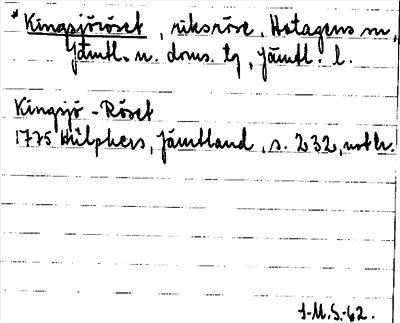 *Kingsjöröset, riksröse, Hotagens sn,
Jämtl. n. doms. tg, Jämtl. l.
Kingsjö-Röset
1775 Hülphers, Jämtland, s. 232, not tr.
1-M.S.-62.